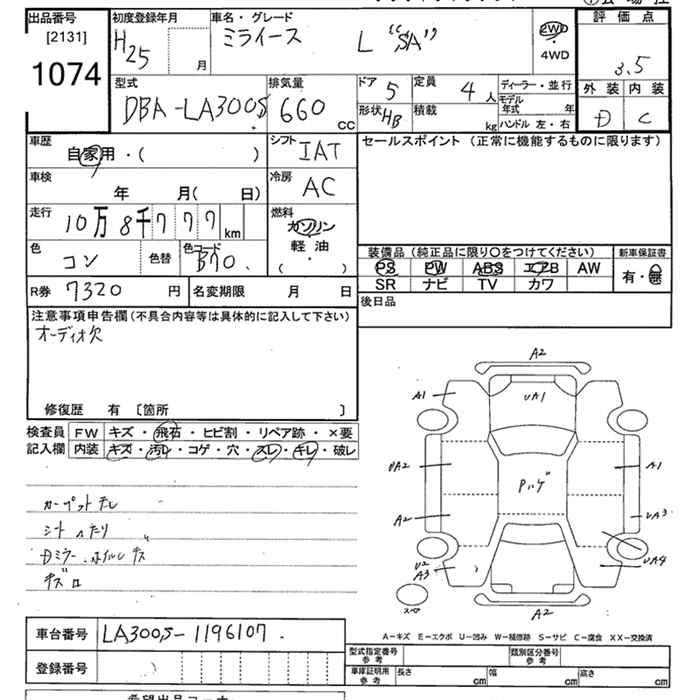 出品番号
[2131]
1074
初度登録年月
H25 月
車名・グレード
ミライース L "SA"
2WD
・
4WD
評価点
3.5
外装 内装
D C
型式
DBA-LA300S
排気量
660 CC
ドア 5
定員 4 人
形状 HB
積載 kg
ディーラー・並行
モデル年式 年
ハンドル 左・右
車歴
自家用・( )
シフト
IAT
セールスポイント (正常に機能するものに限ります)
車検
年 月( 日)
冷房
AC
走行
10万8千777km
燃料
ガソリン
軽油
( ・ )
色
コン
色替
色コード
B70
装備品 (純正品に限り○をつけてください)
PS PW ABS エアB AW
SR ナビ TV カワ
新車保証書
有・無
R券 7320 円
名変期限 月 日
後日品
注意事項申告欄(不具合内容等は具体的に記入して下さい)
オーディオ欠
修復歴 有 〔箇所 〕
検査員
記入欄
FW キズ・飛石・ヒビ割・リペア跡・×要
内装 キズ・汚レ・コゲ・穴・スレ・キレ・破レ
シートヘタリ 〃
Dミラー ホイルキズ
A2
A1
UA1
A1
UA2
Pハゲ
A2
UA3
U2
A3
UA4
スペア
A2
A-キズ E-エクボ U-凹み W-補修跡 S-サビ C-腐食 XX-交換済
車台番号 LA300S-1196107
登録番号
型式指定番号
参考
類別区分番号
参考
車庫証明用
参考
長さ cm
幅 cm
高さ cm